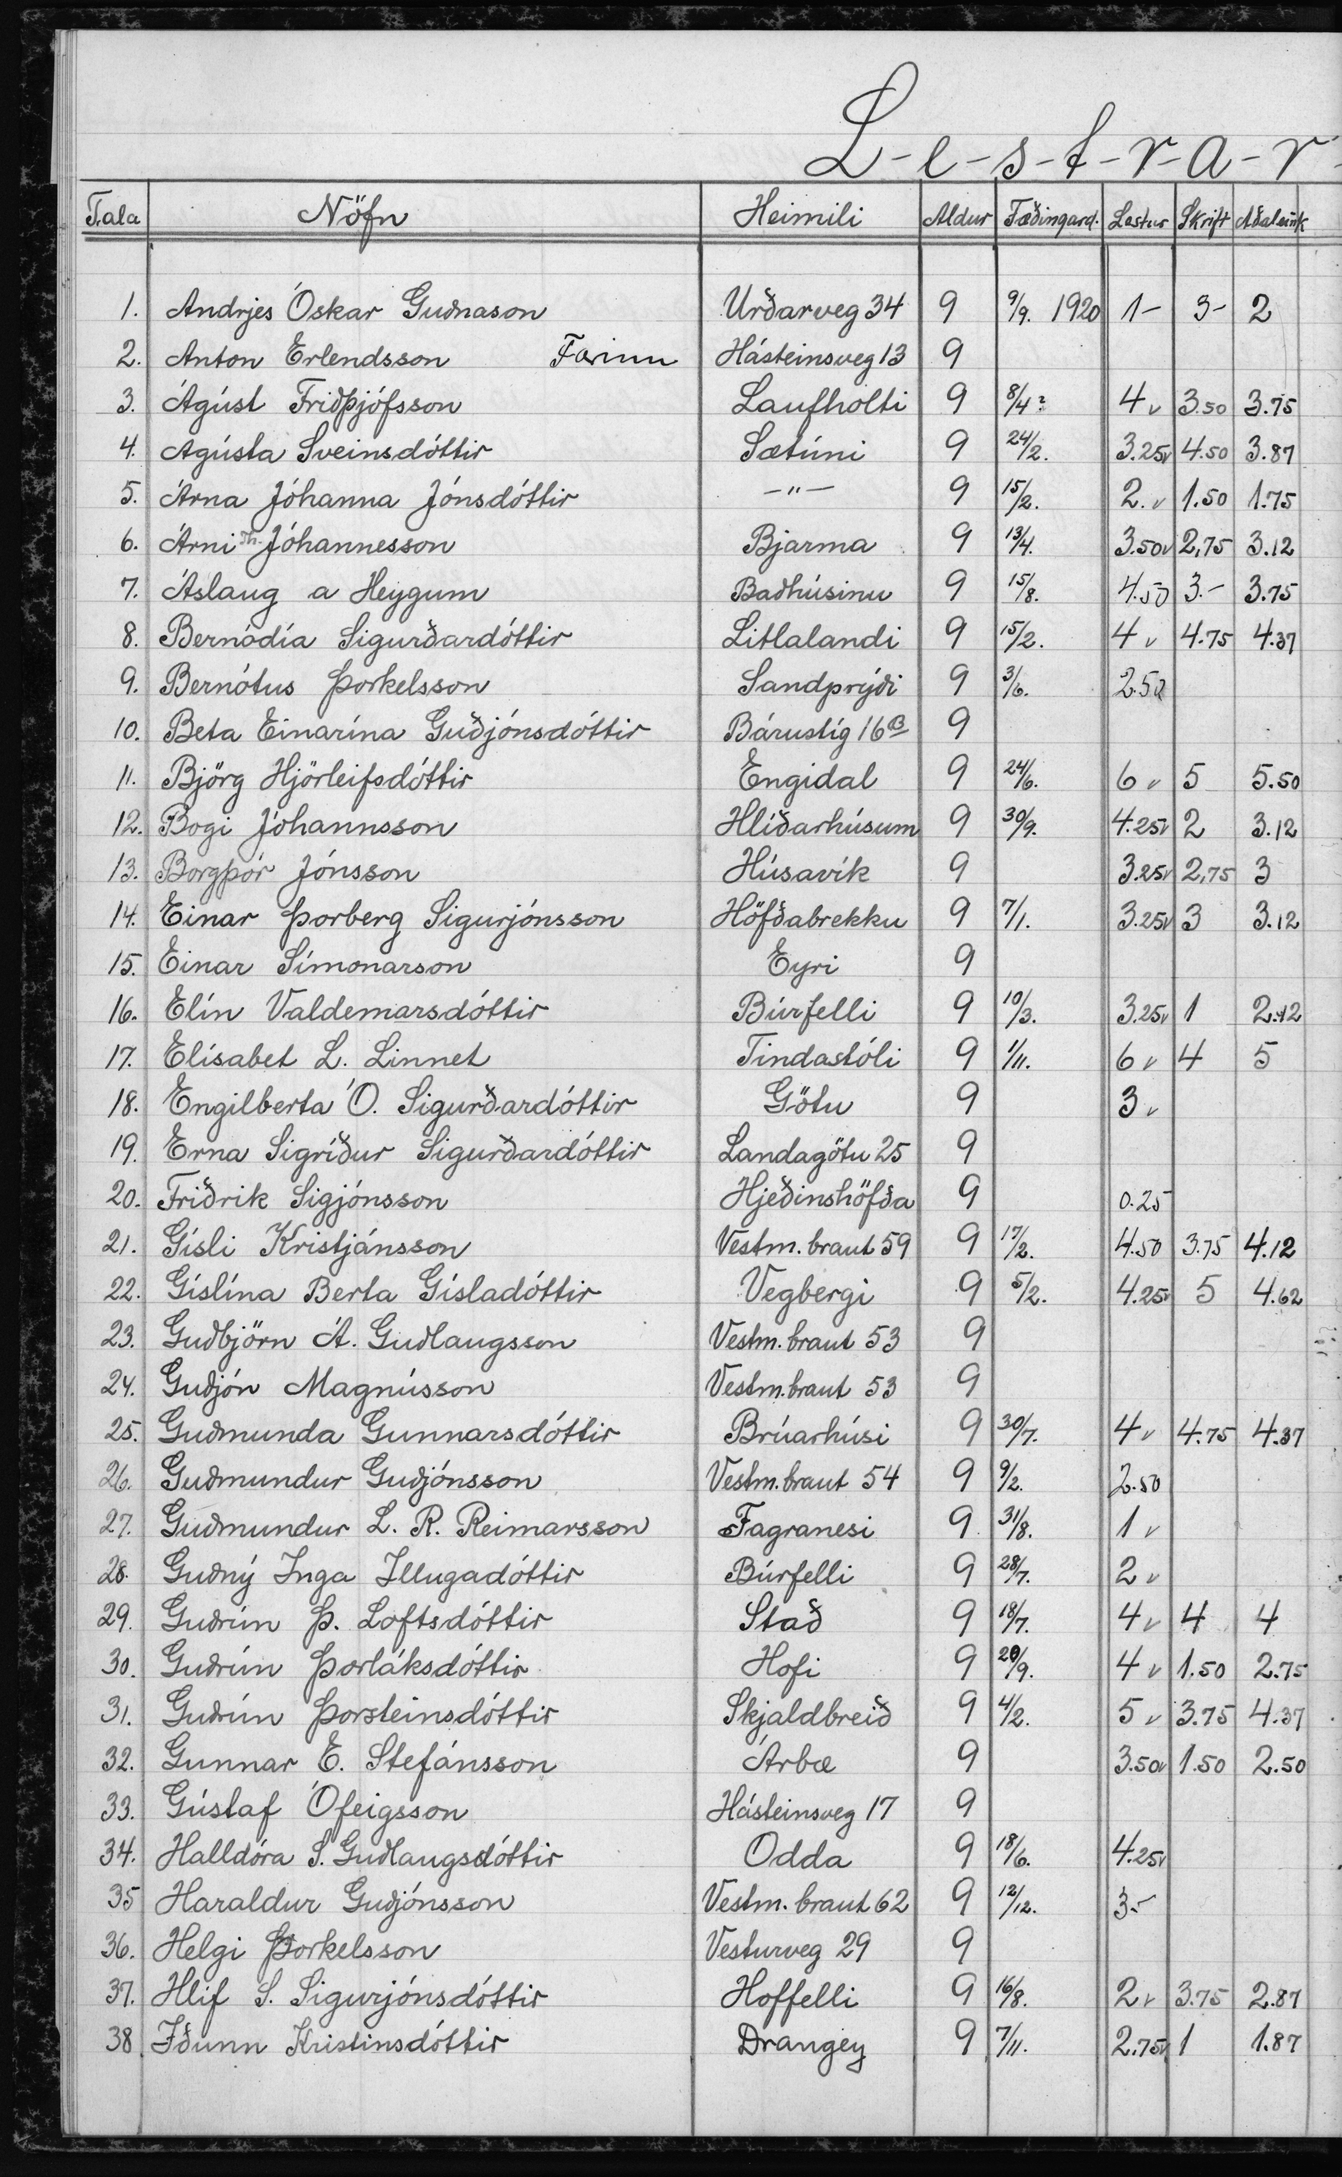 L-e-s-t-r-a-r
Tala Nöfn Heimili Aldur Fæðingard. Lestur Skrift Aðaleink
1. Andrjes Óskar Guðnason Urðarveg 34 9 9/9. 1920 1- 3- 2
2. Anton Erlendsson Farinn Hásteinsveg 13 9
3. Ágúst Friðþjófsson Laufholti 9 8/4? 4 v 3.50 3.75
4. Ágústa Sveinsdóttir Sætúni 9 24/2. 3.25 v 4.50 3.87
5. Árna Jóhanna Jónsdóttir -"- 9 15/2. 2. v 1.50 1.75
6. Árni Th. Jóhannesson Bjarma 9 13/4. 3.50 v 2,75 3.12
7. Áslaug a Heygum Baðhúsinu 9 15/8. 4.50 3.- 3.75
8. Bernódía Sigurðardóttir Litlalandi 9 15/2. 4 v 4.75 4.37
9. Bernótus Þorkelsson Sandprýði 9 3/6. 2.50
10. Beta Einarína Guðjónsdóttir Bárustíg 16B 9
11. Björg Hjörleifsdóttir Engidal 9 24/6. 6 v 5 5.50
12. Bogi Jóhannsson Hlíðarhúsum 9 30/9. 4.25 v 2 3.12
13. Borgþór Jónsson Húsavík 9 3.25 v 2,75 3
14. Einar Þorberg Sigurjónsson Höfðabrekku 9 7/1. 3.25 v 3 3.12
15. Einar Símonarson Eyri 9
16. Elín Valdemarsdóttir Búrfelli 9 10/3. 3.25 v 1 2.12
17. Elísabet L. Linnet Tindastóli 9 1/11. 6 v 4 5
18. Engilberta Ó. Sigurðardóttir Götu 9 3 v
19. Erna Sigríður Sigurðardóttir Landagötu 25 9
20. Friðrik Sigjónsson Hjeðinshöfða 9 0.25
21. Gísli Kristjánsson Vestm. braut 59 9 17/2. 4.50 3.75 4.12
22. Gíslína Berta Gísladóttir Vegbergi 9 5/2. 4.25 v 5 4.62
23. Guðbjörn Á. Guðlaugsson Vestm. braut 53 9
24. Guðjón Magnússon Vestm. braut 53 9
25. Guðmunda Gunnarsdóttir Brúarhúsi 9 30/7. 4 v 4.75 4.37
26. Guðmundur Guðjónsson Vestm. braut 54 9 9/2. 2.50
27. Guðmundur L. R. Reimarsson Fagranesi 9 31/8. 1 v
28. Guðný Inga Illugadóttir Búrfelli 9 28/7. 2 v
29. Guðrún Þ. Loftsdóttir Stað 9 18/7. 4 v 4 4
30. Guðrún Þorláksdóttir Hofi 9 20/9. 4 v 1.50 2.75
31. Guðrún Þorsteinsdóttir Skjaldbreið 9 4/2. 5 v 3.75 4.37
32. Gunnar E. Stefánsson Árbæ 9 3.50 v 1.50 2.50
33. Gústaf Ófeigsson Hásteinsveg 17 9
34. Halldóra S. Guðlaugsdóttir Odda 9 18/6. 4.25 v
35 Haraldur Guðjónsson Vestm. braut 62 9 12/12. 3.-
36. Helgi Þorkelsson Vesturveg 29 9
37. Hlíf S. Sigurjónsdóttir Hoffelli 9 16/8. 2 v 3.75 2.87
38 Iðunn Kristinsdóttir Drangey 9 7/11. 2.75 v 1 1.87